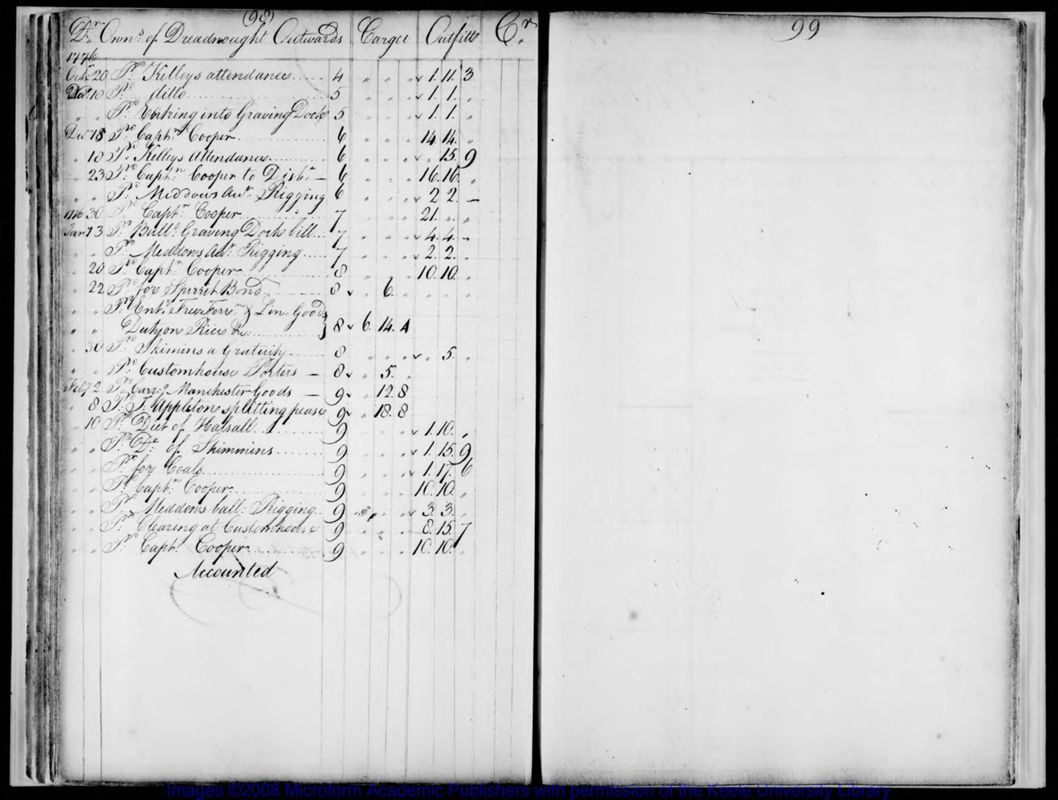 (98)
Dr Ownrs of Dreadnought Outwards Cargoe Outfitts Cr
1776
Octr 20 Pd Kelleys attendance 4 " " " 1. 11. 3
10 Pd ditto 5 " " " 1. 1. "
" " Pd into Graving Dock 5 " " " 1. 1. "
Decr 18 Pd Captn Cooper 6 " " " 14. 14. "
" 18 Pd Kelleys Attendance 6 " " " " 15. 9
" 23 Pd Captn Cooper to Disbr 6 " " " 16. 16. "
" " Pd Meddows Acct Rigging 6 " " " 2. 2. –
1776 30 Pd Captn Cooper 7 " " " 21. " "
Janr 13 Pd Ballc Graving Docks bill 7 " " " 4. 4. –
" " Pd Meddows Acct Rigging 7 " " " 2. 2. "
" 20 Pd Captn Cooper 8 " " " 10. 10. "
" 22 Pd for Spirrit Bond 8 " 6. " " " "
" " Pd Entr Free Forrn & Lin. Goods
" " Duty on Rice &c 8 6. 14. 4
" 30 Pd Skimins a Gratuity 8 " " " " 5. "
" " Pd Customhouse Porters – 8 " 5. "
Feby 2 Pd Carrg Manchester Goods – 9 " 12. 8
" 8 Pd T. Appleton splitting pease 9 " 18. 8
" 10 Pd Diet of Halsall 9 " " " 1. 10. "
" " Pd Do of Skimmins 9 " " " 1. 15. 9
" " Pd for Coals 9 " " " 1. 17. 6
" " Pd Captn Cooper 9 " " " 10. 10. "
" " Pd Meddows ball: Rigging 9 " " " 3. 3. "
" " Pd Clearing at Customhouse 9 " " " 8. 15. 7
" " Pd Captn Cooper 9 " " " 10. 10. "
Accounted
99
Images ©2008 Microform Academic Publishers with permission of the Keele University Library